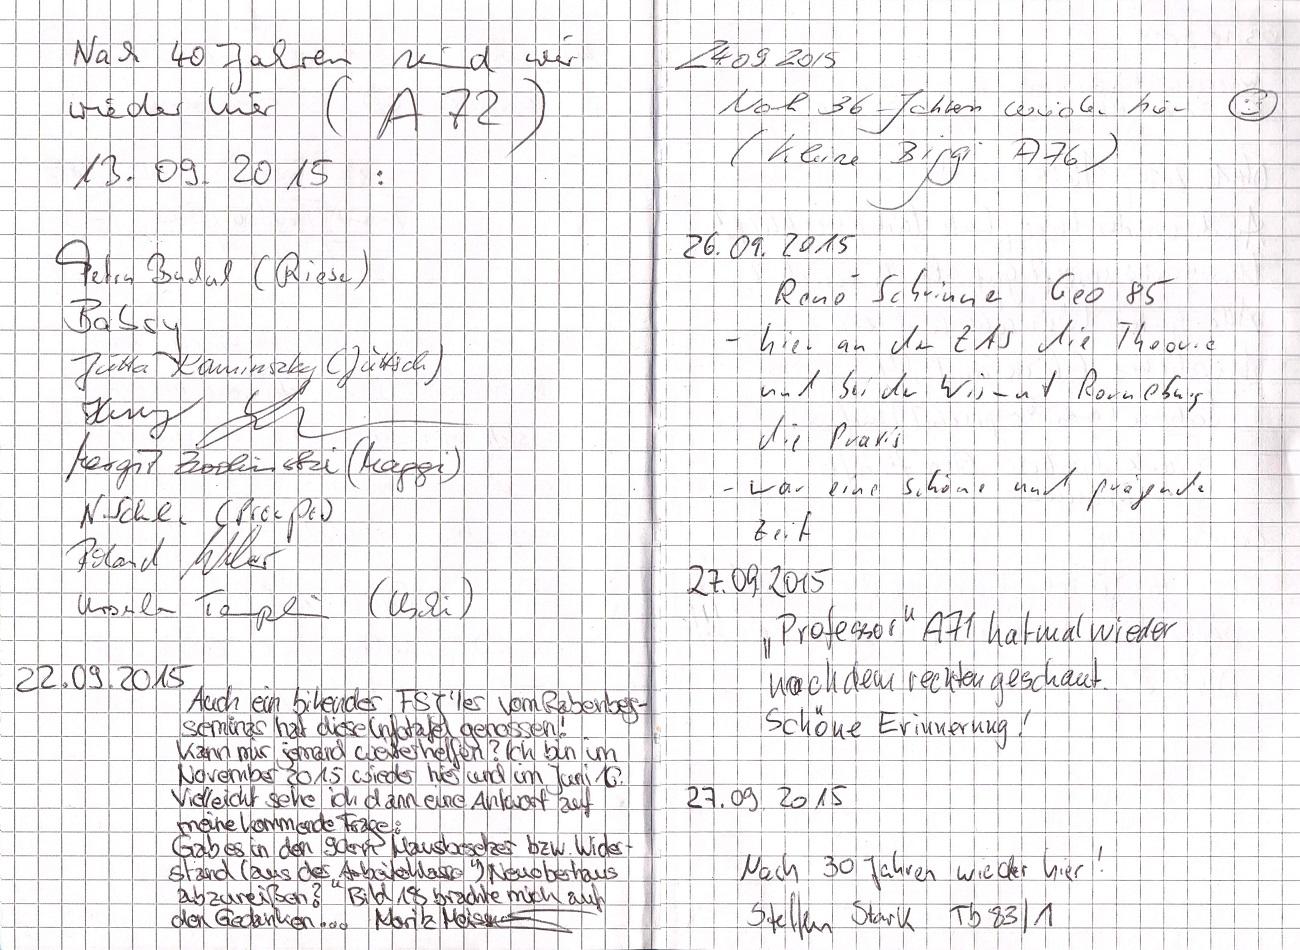 Nach 40 Jahren sind wir
wieder hier (A 72)
13. 09. 2015 :
Petra (Riese)
Bassy
Jutta Kaminszky (Jüttsch)
Margit (Maggi)
Roland
Ursula Templin (Uschi)
22.09.2015
Auch ein bikender FSJ'ler vom Rabenberg-
seminar hat diese Infotafel genossen!
Kann mir jemand weiterhelfen? Ich bin im
November 2015 wieder hier und im Juni 16.
Vielleicht sehe ich dann eine Antwort auf
meine kommende Frage:
Gab es in den 90ern Hausbesetzer bzw. Wider-
stand (aus der "Arbeiterklasse") Neuoberhaus
abzureißen? Bild 18 brachte mich auf
den Gedanken... Moritz
24.09 2015
Nach 36 Jahren wieder hier
(Kleine Biggi A76)
26.09. 2015
René Schrinner Geo 85
- hier an der ZAS die Theorie
und bei der Wismut Ronneburg
die Praxis
- war eine schöne und prägende
Zeit
27.09 2015
„Professor“ A71 hat mal wieder
nach dem rechten geschaut.
Schöne Erinnerung!
27.09 2015
Nach 30 Jahren wieder hier!
Steffen Stark Tb 83/1